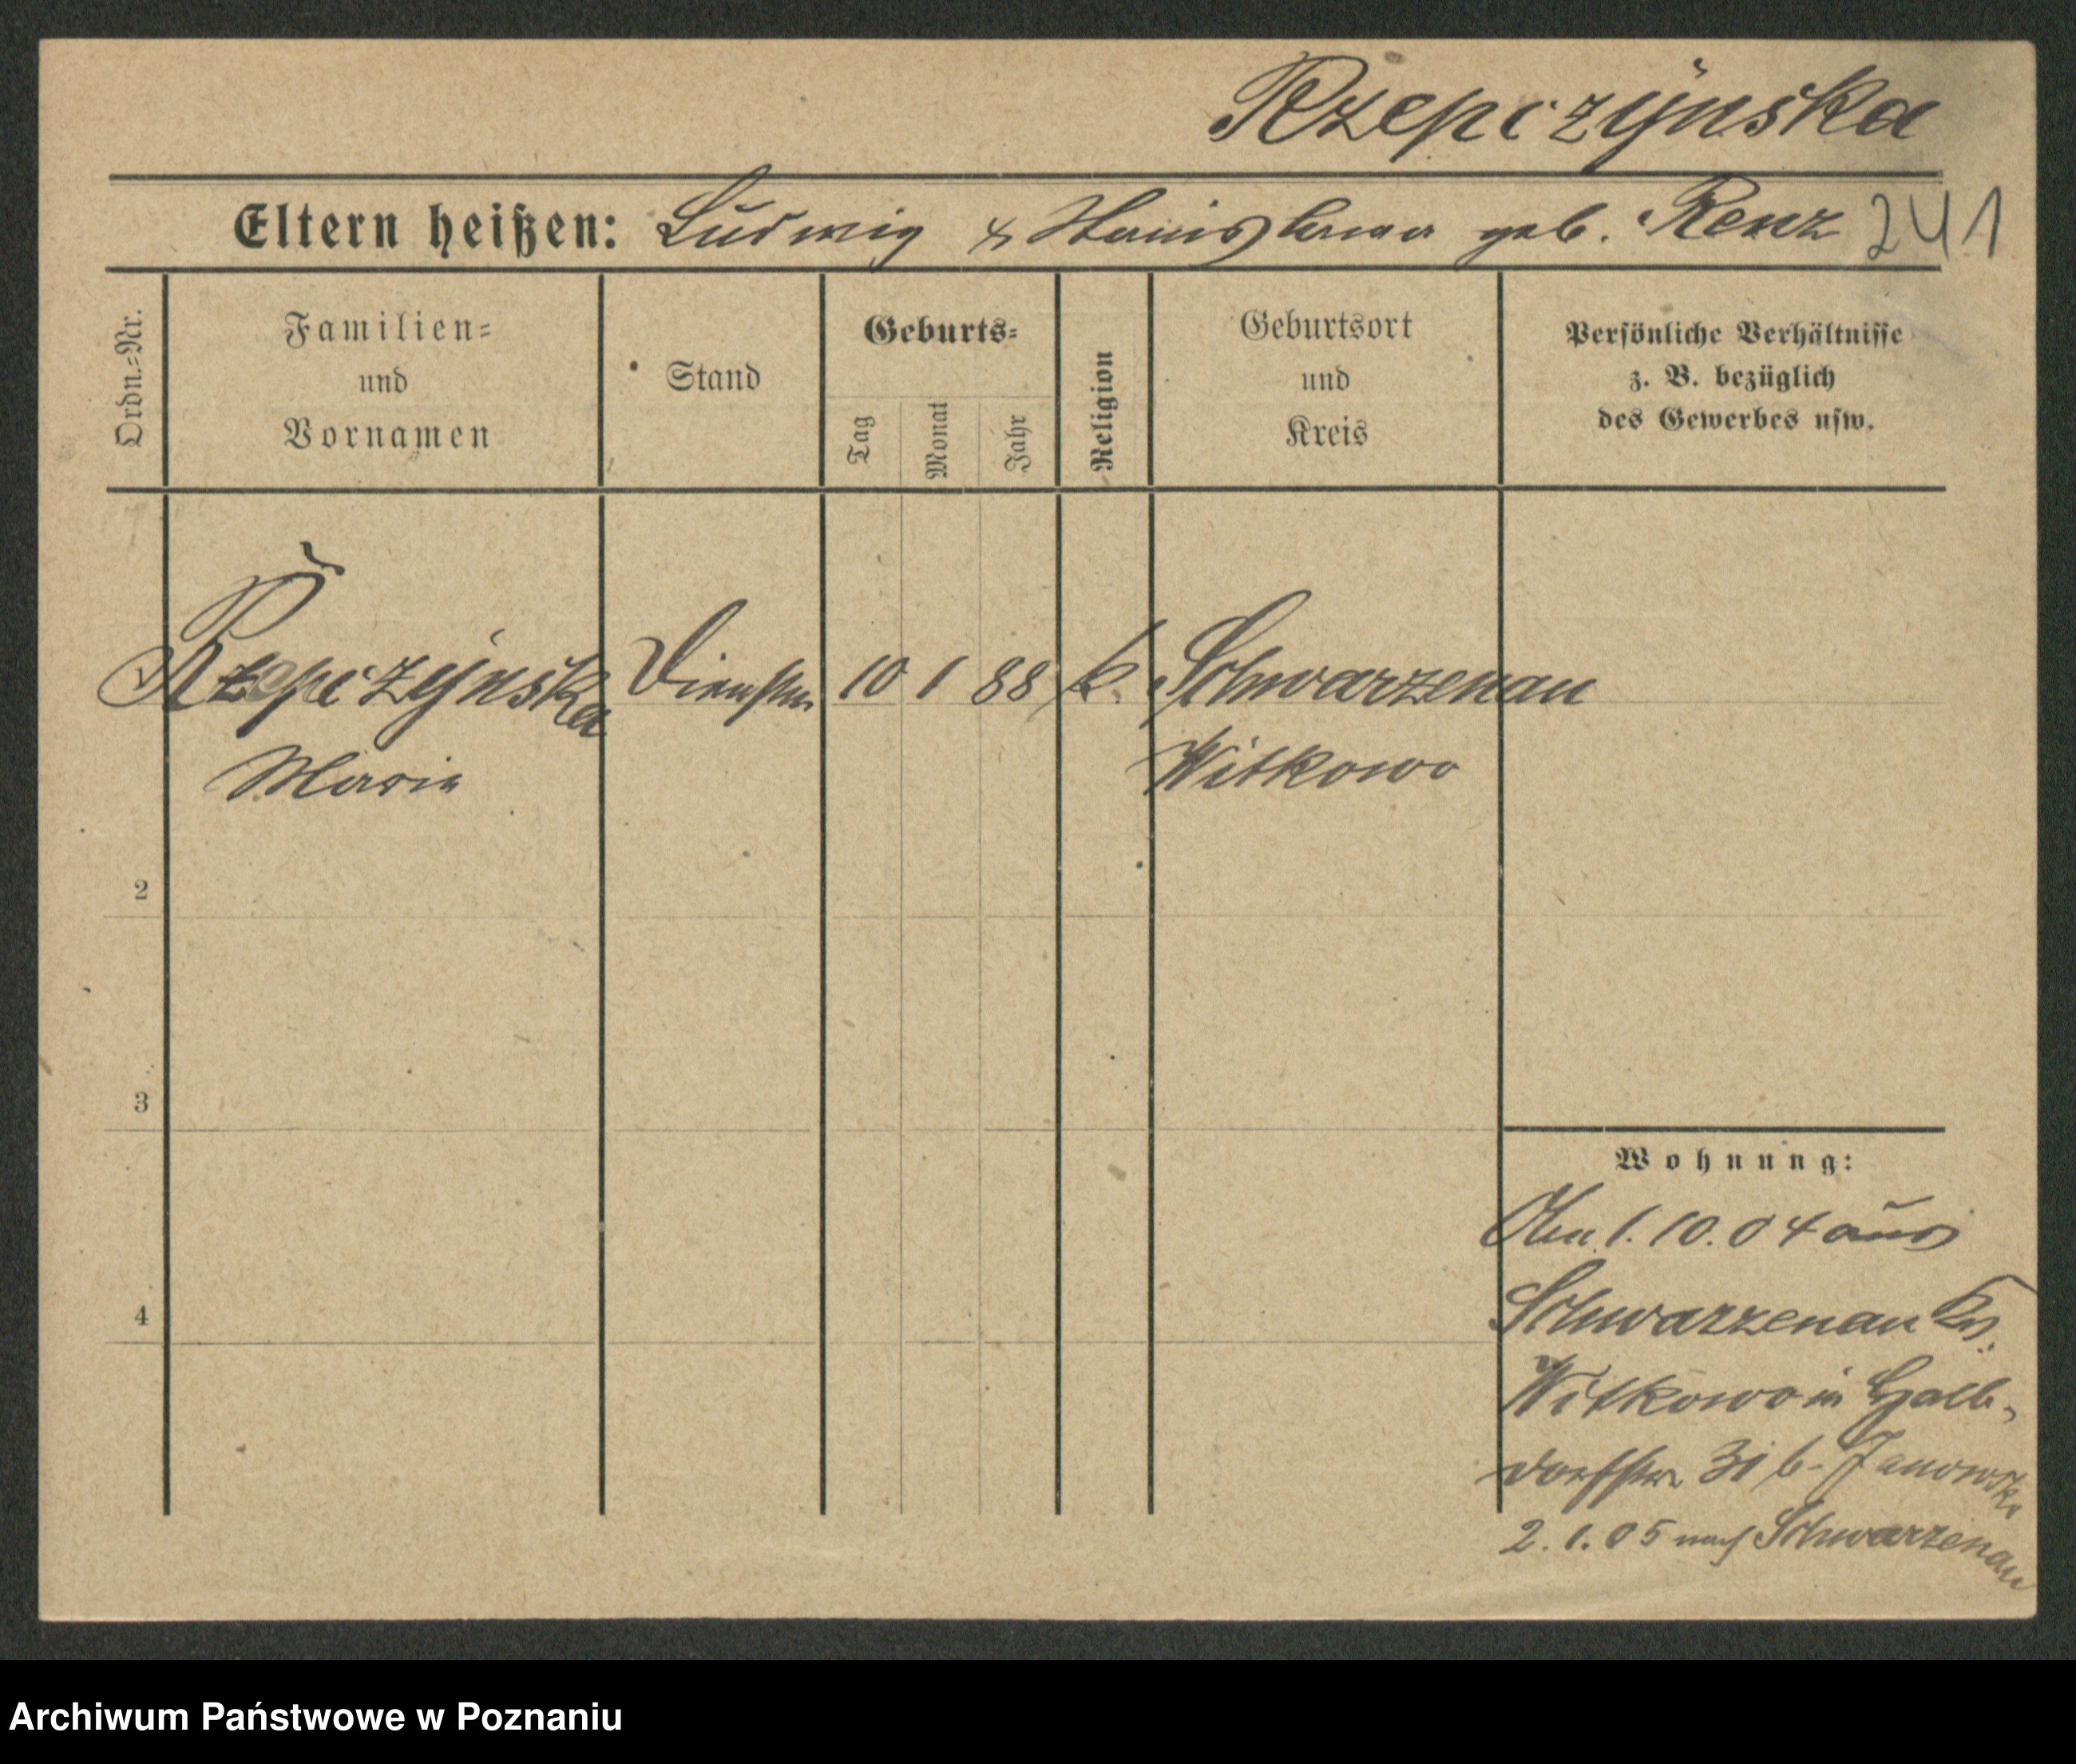 Rzepczynska
Eltern heißen: Ludwig & Stanislawa geb. Renz 241
Ordn.=Nr.
Familien=
und
Vornamen
Stand
Geburts=
Tag
Monat
Jahr
Religion
Geburtsort
und
Kreis
Persönliche Verhältnisse
z. B. bezüglich
des Gewerbes usw.
Rzepczynska 10 1 88 k. Schwarzenau
Maria Witkowo
2
3
4
Wohnung:
1. 10. 04 aus
Schwarzenau Krs.
Witkowo in
31 b. Janowska
2. 1. 05 nach Schwarzenau
Archiwum Państwowe w Poznaniu